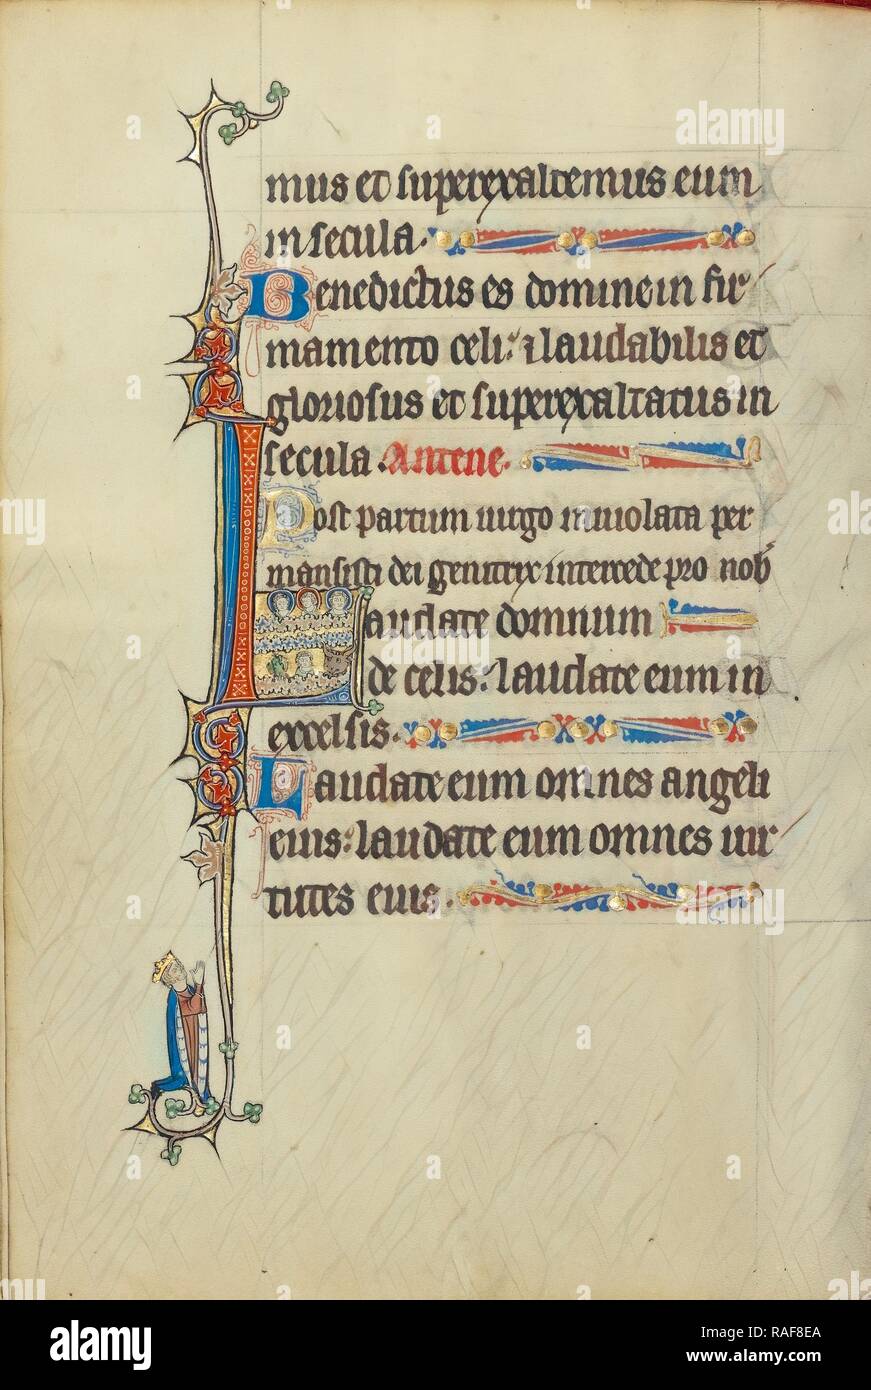 mus et superexaltemus eum
in secula.
Benedictus es domine in fir
mamento celi: et laudabilis et
gloriosus et superexaltatus in
secula. Antene.
Post partum uirgo inuiolata per
mansisti dei genitrix intercede pro nob
Laudate domnum
de celis: laudate eum in
excelsis.
Laudate eum omnes angeli
eius: laudate eum omnes uir
tutes eius.
alamy
Image ID: RAF8EA
www.alamy.com